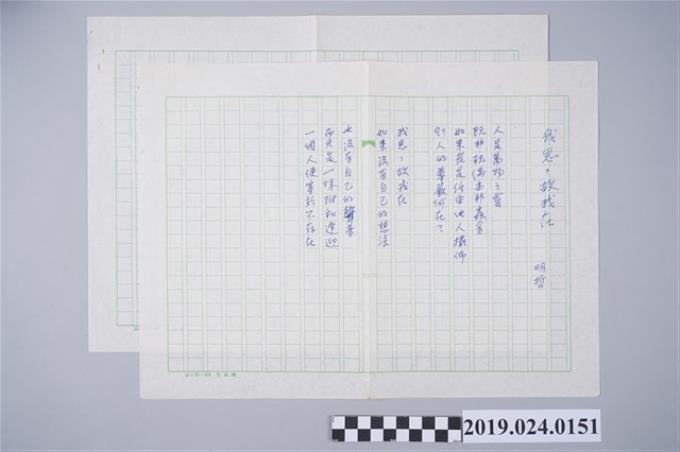 我思，故我在
明哲
人是萬物之靈
既非玩偶也非寵
如果老是任由他人擺佈
則人的尊嚴何在？
我思，故我在
如果沒有自己的想法
也沒有自己的聲音
而只是一味附和逢迎
一個人便等於不存在
2019.024.0151